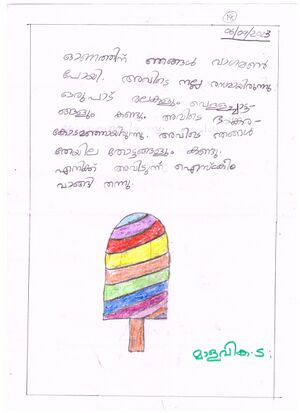 14
06/09/2023
ഓണത്തിന് ഞങ്ങൾ വാഗമൺ
പോയി. അവിടെ നല്ല രസമായിരുന്നു
ഒരുപാട് മലകളും വെള്ളച്ചാട്ട-
ങ്ങളും കണ്ടു. അവിടെ ഭയങ്കര-
കോടമഞ്ഞായിരുന്നു. അവിടെ ഞങ്ങൾ
തേയില തോട്ടങ്ങളും കണ്ടു.
എനിക്ക് അവിടുന്ന് ഐസ്ക്രീം
വാങ്ങി തന്നു.
മാളവിക. ട.